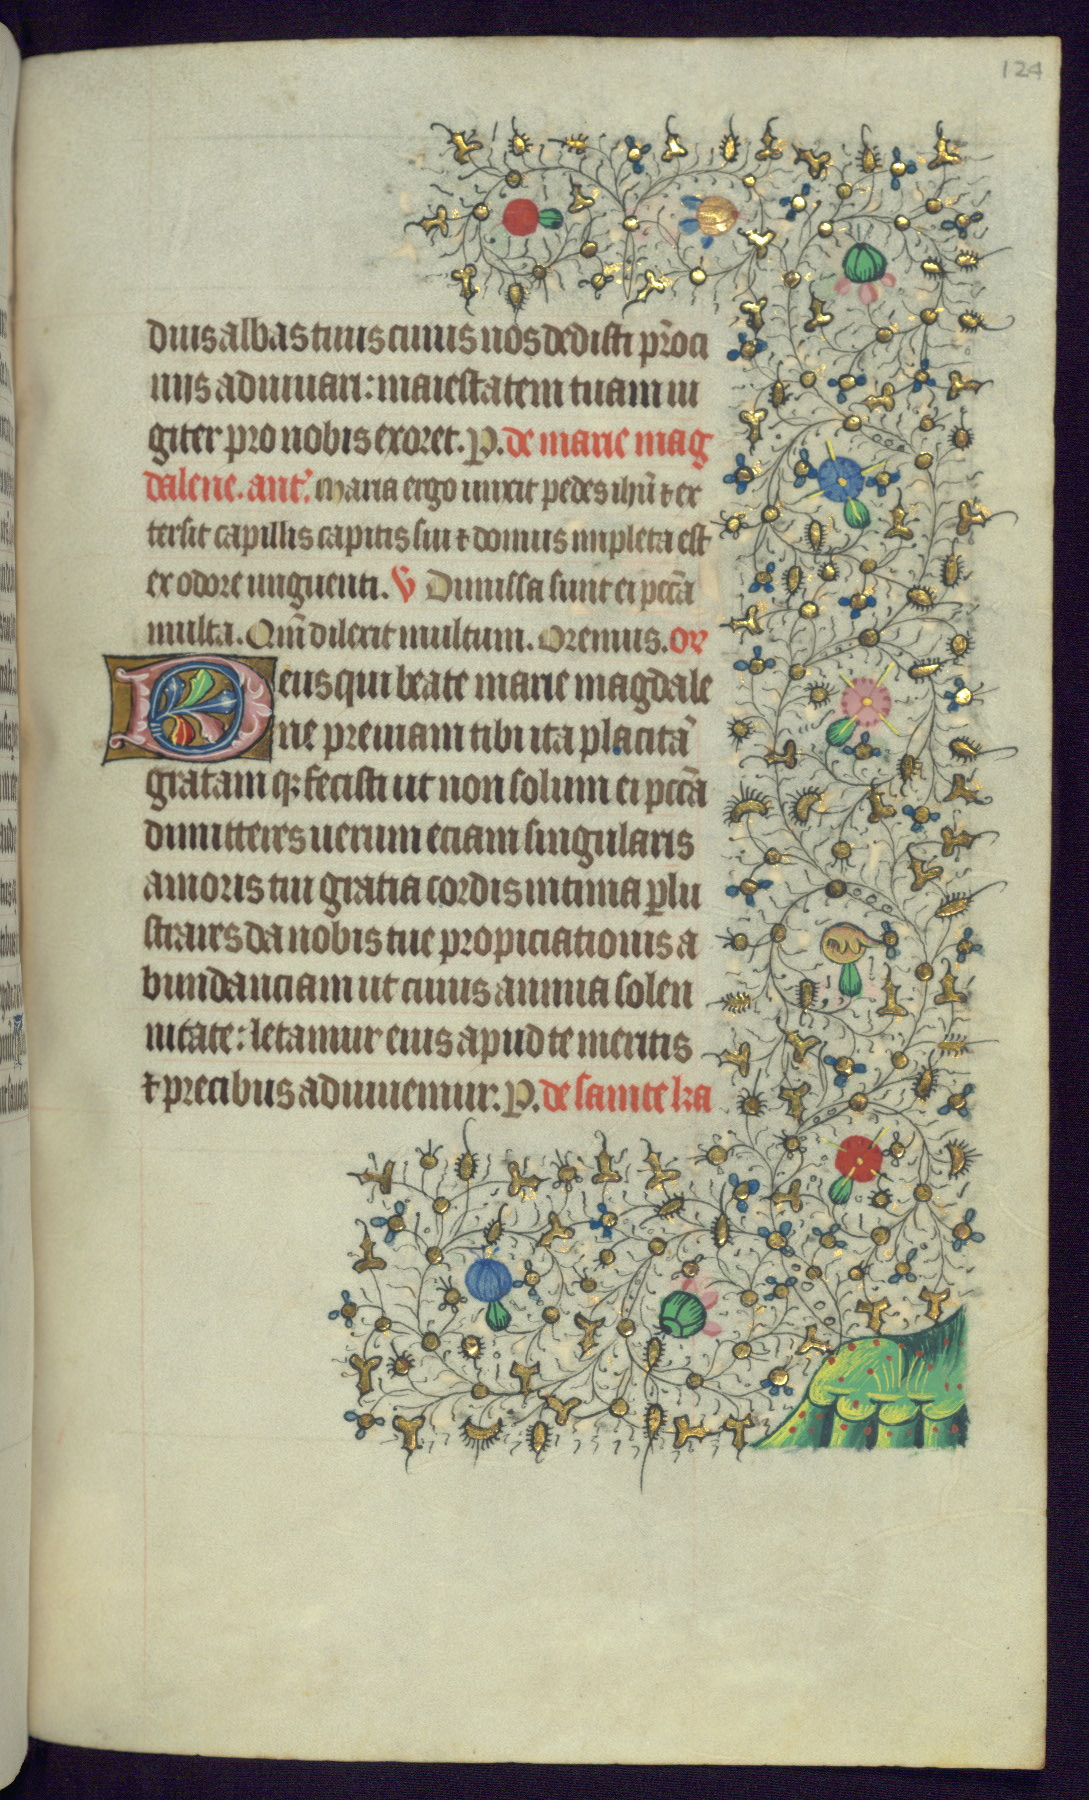 124
duis albastuus cuius nos dedisti p̄roci
niis adiuuari: maiestatem tuam iu
giter pro nobis exoret. P. de marie mag
dalene. ant'. Maria ergo unxit pedes ih̄u ⁊ ex
tersit capillis capitis sui ⁊ domus impleta est
ex odore unguenti. V Dimissa sunt ei pcc̄ā
multa. Qm̄ dilexit multum. Oremus. or
Deus qui beate marie magdale
ne premiam tibi ita placitā
gratam q; fecisti ut non solum ei pcc̄ā
dimitteres uerum eciam singularis
amoris tui gratia cordis intima ꝑlu
strares da nobis tue propiciationis a
bundanciam ut cuius annua solen
nitate: letamur eius apud te meritis
⁊ precibus adiuuemur. P. de saincte ka